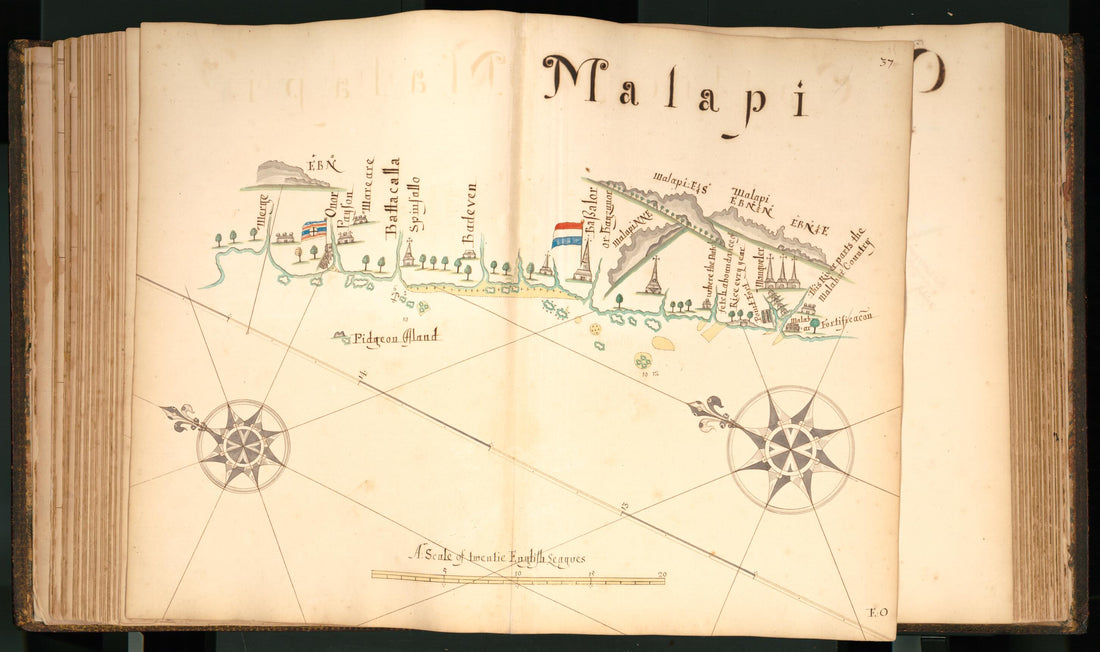 Malapi
37
Merge
E B N
Onor
PaySon
Mareare
Battacalla
Spinsallo
Badeven
BaSSalor
or
Malapi NNE
Malapi E½S
Malapi
E B N ½ N
E B N ½ E
where the
fetch aboundance
Rice every yeare
This River parts the
Malabar Country
Malab
ar
Fortificacon
Pidgeon Iſland
14
13
A Scale of twentie Engliſh Leagues
5
10
15
20
E. O